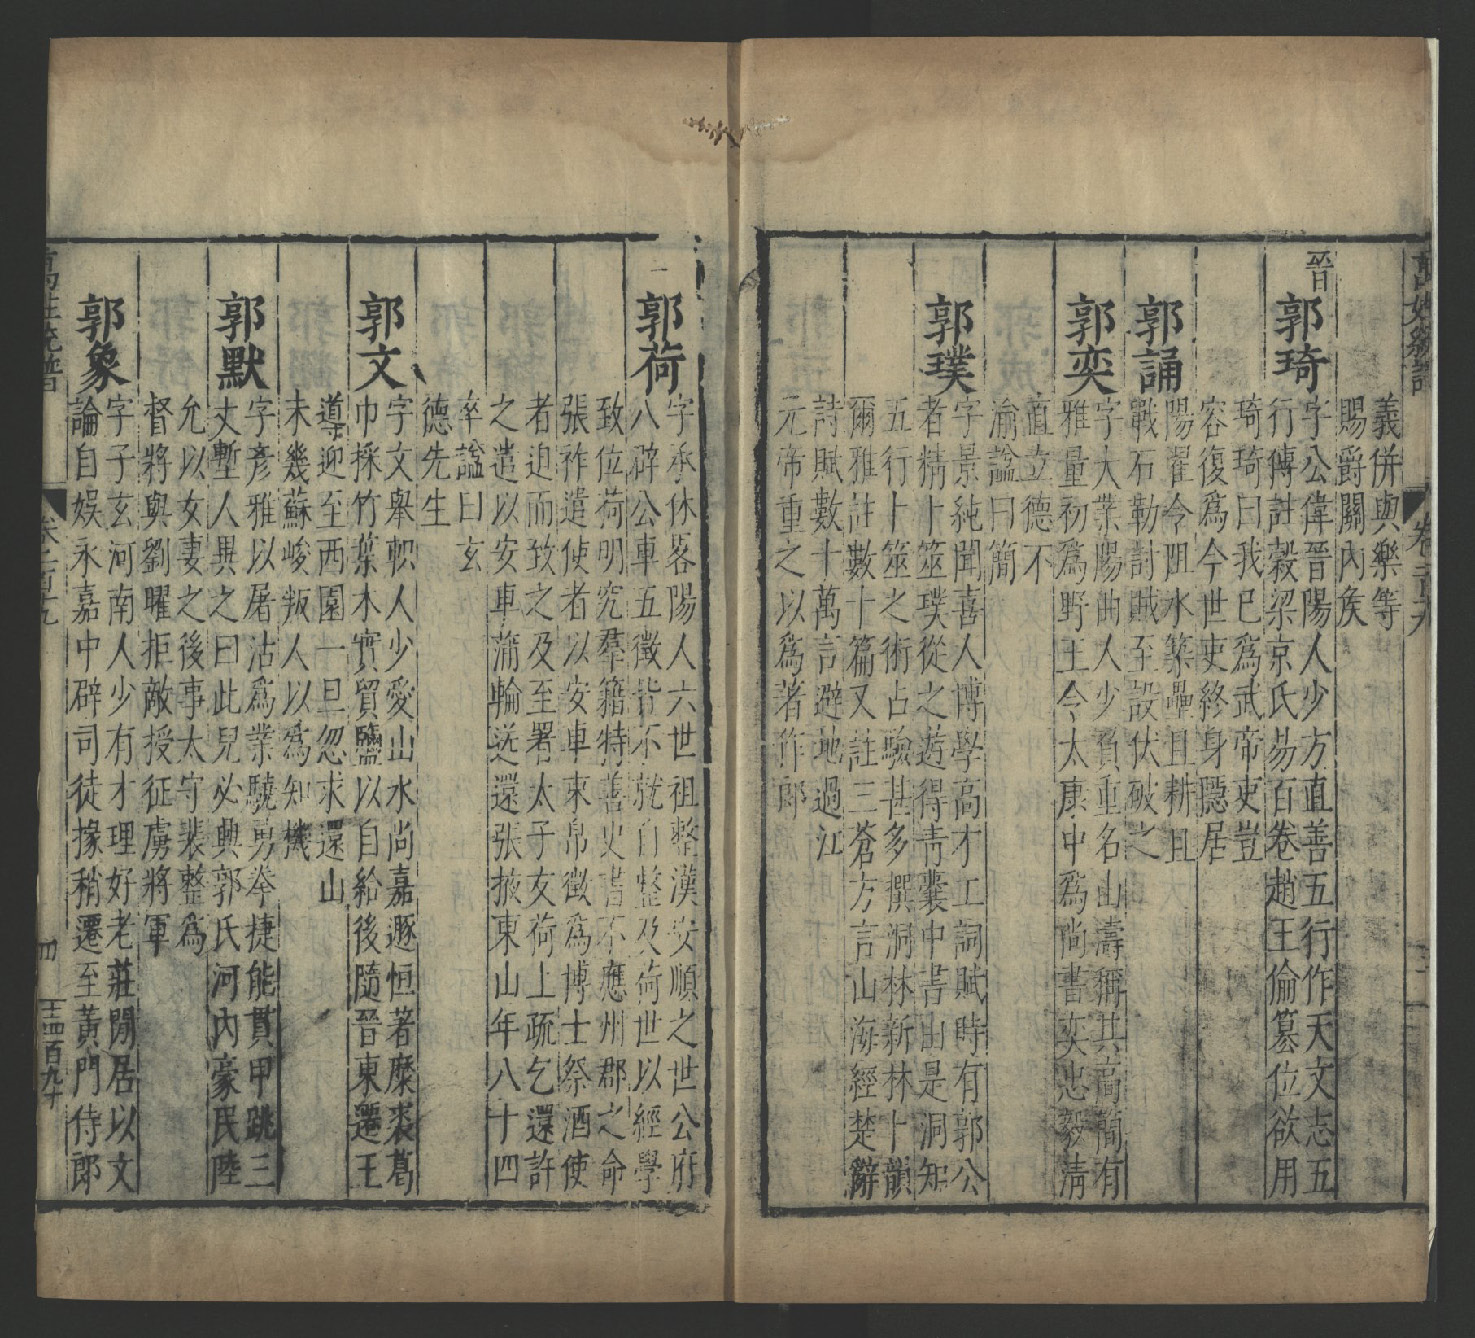 萬姓統譜 卷一百十九
義併與樂等
賜爵關內侯
晉
郭琦
字公偉晉陽人少方直善五行作天文志五
行傳註穀梁京氏易百卷趙王倫篡位欲用
琦琦曰我已爲武帝吏豈
容復爲今世吏終身隱居
郭誦
陽翟令阻水築壘且耕且
戰石勒討賊至設伏破之
郭奕
字大業陽曲人少負重名山濤稱其高簡有
雅量初爲野王令太康中爲尚書奕忠毅清
直立德不
渝諡曰簡
郭璞
字景純聞喜人博學高才工詞賦時有郭公
者精卜筮璞從之遊得青囊中書由是洞知
五行卜筮之術占驗甚多撰洞林新林卜韻
爾雅註數十篇又註三蒼方言山海經楚辭
詩賦數十萬言避地過江
元帝重之以爲著作郎
郭荷
字承休畧陽人六世祖整漢安順之世公府
八辟公車五徵皆不就自整及荷世以經學
致位荷明究羣籍特善史書不應州郡之命
張祚遣使者以安車束帛徵爲博士祭酒使
者迫而致之及至署太子友荷上疏乞還許
之遣以安車蒲輪送還張掖東山年八十四
卒諡曰玄
德先生
郭文
字文舉軹人少愛山水尚嘉遯恒著麋裘葛
巾採竹葉木實貿鹽以自給後隨晉東遷王
導迎至西園一旦忽求還山
未幾蘇峻叛人以爲知機
郭默
字彥雅以屠沽爲業驍勇拳捷能貫甲跳三
丈塹人異之曰此兒必興郭氏河內豪民陸
允以女妻之後事太守裴整爲
督將與劉曜拒敵授征虜將軍
郭象
字子玄河南人少有才理好老莊閒居以文
論自娛永嘉中辟司徒掾稍遷至黃門侍郎
萬姓統譜 卷一百十九 四 王四百九十